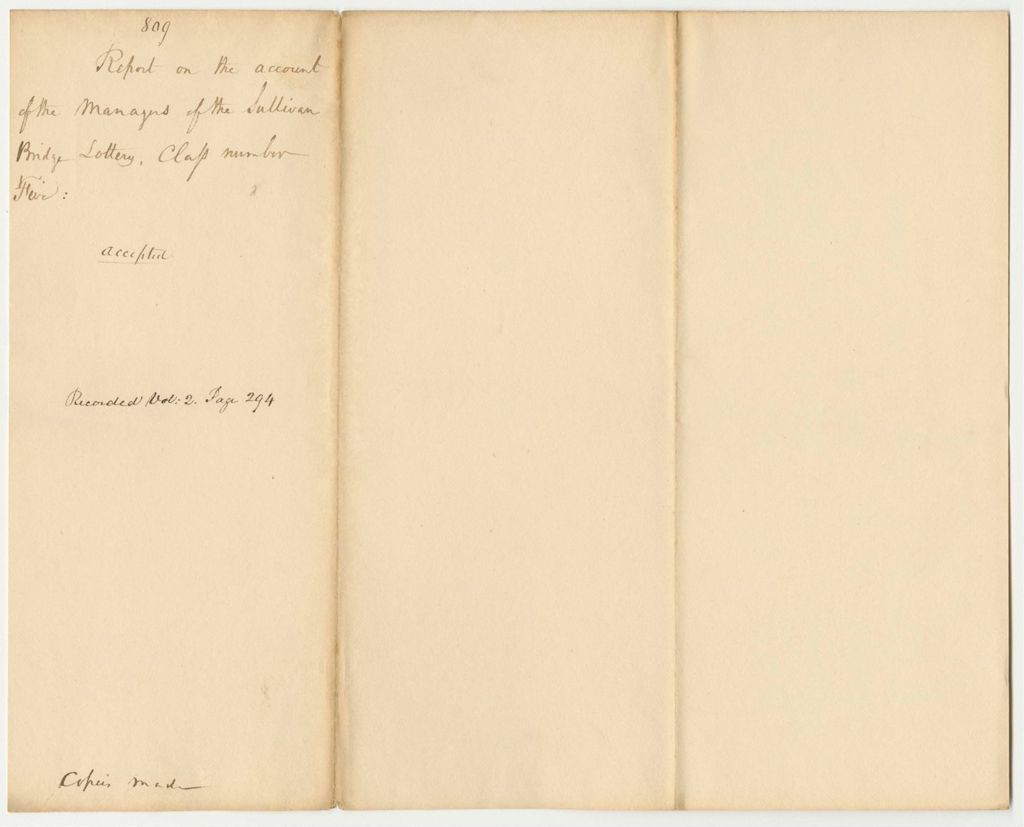 809
Report on the account
of the Managers of the Sullivan
Bridge Lottery, Class number
Five:
accepted
Recorded Vol: 2. Page 294
Copies made